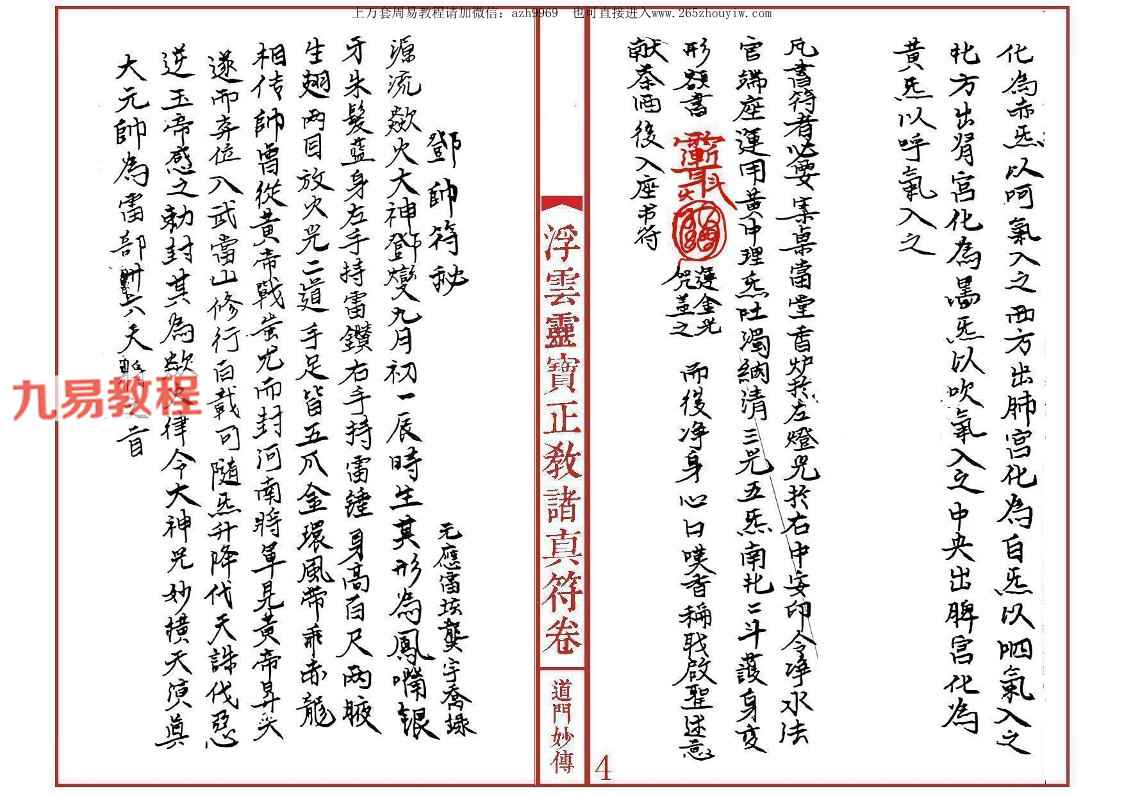 上万套周易教程请加微信：azh9969　也可直接进入www.265zhouyiw.com
化為赤炁以呵氣入之西方出肺宮化為白炁以呬氣入之
北方出腎宮化為黑炁以吹氣入之中央出脾宮化為
黃炁以呼氣入之
凡書符者必要桌當堂香炉於左燈光於右中安印令净水法
官端座運用黃中理炁吐濁納清三光五炁南北二斗護身变
形額書
運金光
咒盖之
而後净身心口噗香稱职啟聖述意
献茶洒後入座书符
浮雲靈寶正教諸真符卷
道門妙傳
4
鄧帥符秘
元應雷坛龔宇喬錄
源流欻火大神鄧燮九月初一辰時生其形為鳳嘴銀
牙朱髮藍身左手持雷鑽右手持雷錘身高百尺两腋
生翅两目放火光二道手足皆五爪金環風帶乖赤龍
相传帥曾從黃帝戰蚩尤而封河南將軍見黃帝昇天
遂而弃位入武當山修行百載可随炁升降代天誅伐惡
逆玉帝感之勅封其為欻火律令大神咒妙横天演真
大元帥為雷部卅六天首
九易教程